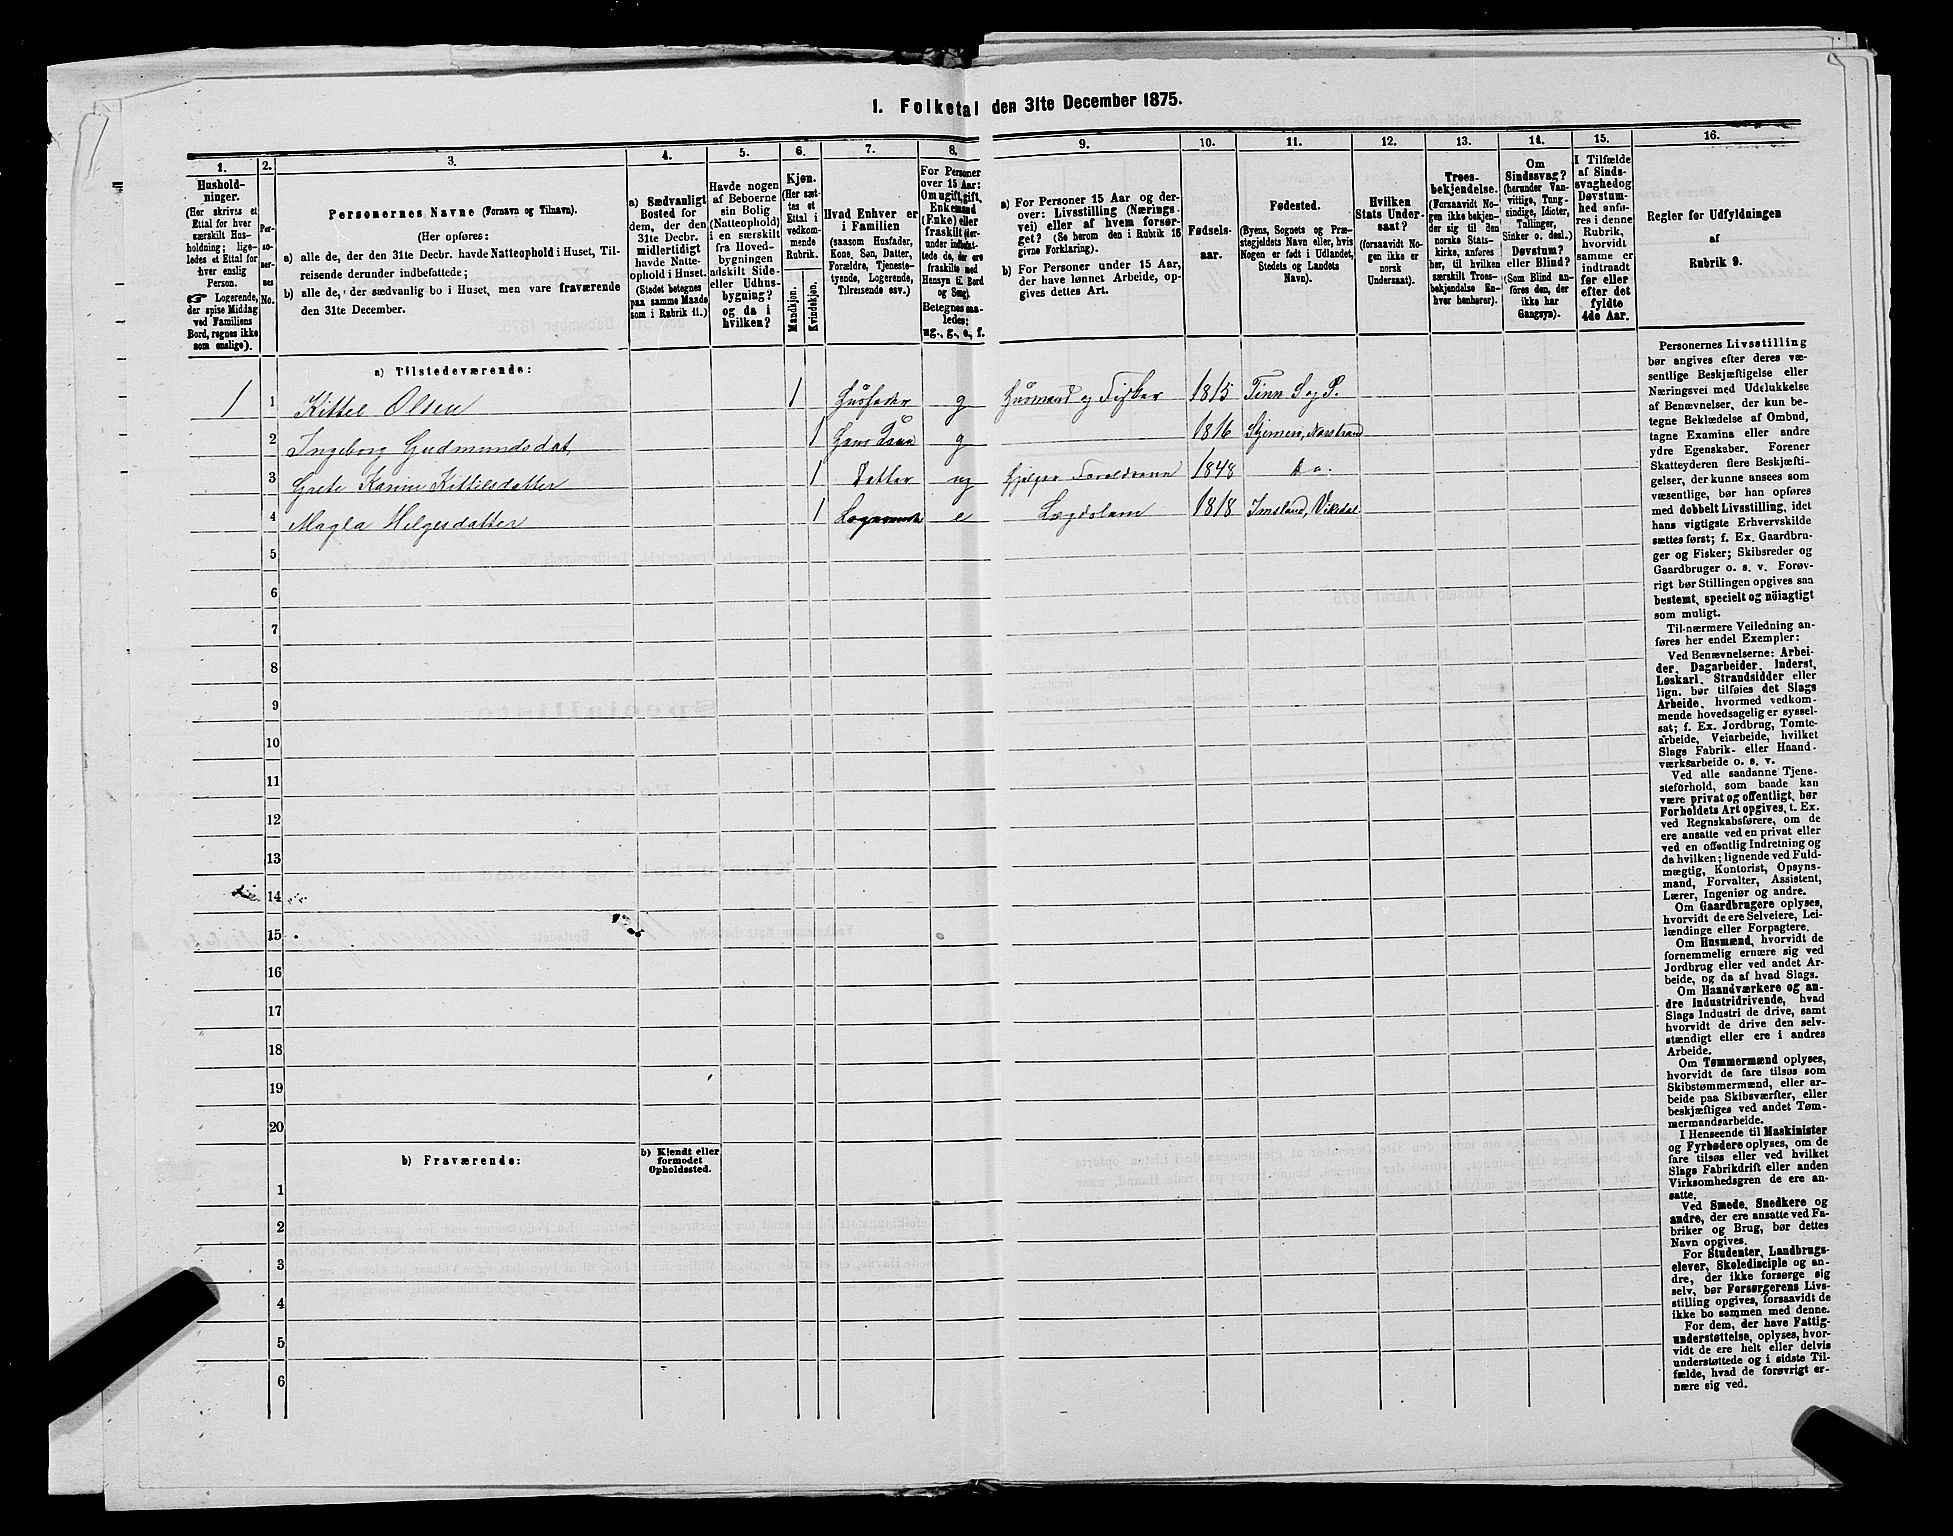 1. Folketal den 31te December 1875.
1. 2. 3. 4. 5. 6. 7. 8. 9. 10. 11. 12. 13. 14. 15. 16.
Hushold-
ninger.
(Her skrives et
Ettal for hver
særskilt Hus-
holdning; lige-
ledes et Ettal for
hver enslig
Person.
☞ Logerende,
der spise Middag
ved Familiens
Bord, regnes ikke
som enslige).
Per-
so-
ner-
nes
No.
Personernes Navne (Fornavn og Tilnavn).
(Her opføres:
a) alle de, der den 31te Decbr. havde Natteophold i Huset, Til-
reisende derunder indbefattede;
b) alle de, der sædvanlig bo i Huset, men vare fraværende
den 31te December.
a) Sædvanligt
Bosted for
dem, der den
31te Decbr.
midlertidigt
havde Natte-
ophold i Huset.
(Stedet betegnes
paa samme Maade
som i Rubrik 11.)
Havde nogen
af Beboerne
sin Bolig
(Natteophold)
i en særskilt
fra Hoved-
bygningen
adskilt Side-
eller Udhus-
bygning?
og da i
hvilken?
Kjøn.
(Her sæt-
tes et
Ettal i
vedkom-
mende
Rubrik.
Mandkjøn.
Kvindekjøn.
Hvad Enhver er
i Familien
(saasom Husfader,
Kone, Søn, Datter,
Forældre, Tjeneste-
tyende, Logerende,
Tilreisende osv.)
For Personer
over 15 Aar:
Om ugift, gift,
Enkemand
(Enke) eller
fraskilt (her-
under indbefat-
tede de, der ere
fraskilte med
Hensyn til Bord
og Seng).
Betegnes saa-
ledes:
ug., g., e., f.
a) For Personer 15 Aar og der-
over: Livsstilling (Nærings-
vei) eller af hvem forsør-
get? (Se herom den i Rubrik 16
givne Forklaring).
b) For Personer under 15 Aar,
der have lønnet Arbeide, op-
gives dettes Art.
Fødsels-
aar.
Fødested.
(Byens, Sognets og Præ-
stegjeldets Navn eller, hvis
Nogen er født i Udlandet,
Stedets og Landets
Navn).
Hvilken
Stats Under-
saat?
(forsaavidt No-
gen ikke er
norsk
Undersaat).
Troes-
bekjendelse.
(Forsaavidt No-
gen ikke bekjen-
der sig til den
norske Stats-
kirke, anføres
her, til hvilken
særskilt Troes-
bekjendelse En-
hver henhører).
Om
Sindssvag?
(herunder Van-
vittige, Tung-
sindige, Idioter,
Tullinger,
Sinker o. desl.)
Døvstum?
eller Blind?
(Som Blind an-
føres den, der
ikke har
Gangsyn).
I Tilfælde
af Sinds-
svaghed og
Døvstum-
hed anfø-
res i denne
Rubrik,
hvorvidt
samme er
indtraadt
før eller
efter det
fyldte
4de Aar.
Regler for Udfyldningen
af
Rubrik 9.
a) Tilstedeværende:
1 1 Kittel Olsen 1 Husfader g Husmand og Fisker 1815 Tinn S og P.
2 Ingeborg Gudmundsdat, 1 Hans Kone g 1816
3 Grete Karine Kittilsdatter 1 Datter ug Hjælper Foreldrene 1848 Do.
4 Magla Helgesdatter 1 e Lægdslem 1818 Imsland, Vikedal
5
6
7
8
9
10
11
12
13
14
15
16
17
18
19
20
b) Fraværende:
b) Kjendt eller
formodet
Opholdssted.
1
2
3
4
5
6
Personernes Livsstilling
bør angives efter deres væ-
sentlige Beskjæftigelse eller
Næringsvei med Udelukkelse
af Benævnelser, der kun be-
tegne Beklædelse af Ombud,
tagne Examina eller andre
ydre Egenskaber. Forener
Skatteyderen flere Beskjæfti-
gelser, der kunne ansees som
væsentlige, bør han opføres
med dobbelt Livsstilling, idet
hans vigtigste Erhvervskilde
sættes først; f. Ex. Gaardbru-
ger og Fisker; Skibsreder og
Gaardbruger o. s. v. Forøv-
rigt bør Stillingen opgives saa
bestemt, specielt og nöiagtigt
som muligt.
Til nærmere Veiledning an-
føres her endel Exempler:
Ved Benævnelserne: Arbei-
der, Dagarbeider, Inderst,
Løskarl, Strandsidder eller
lign. bør tilføies det Slags
Arbeide, hvormed vedkom-
mende hovedsagelig er syssel-
sat; f. Ex. Jordbrug, Tomte-
arbeide, Veiarbeide, hvilket
Slags Fabrik- eller Haand-
værksarbeide o. s. v.
Ved alle saadanne Tjene-
steforhold, som baade kan
være privat og offentligt, bør
Forholdets Art opgives, t. Ex.
ved Regnskabsførere, om de
ere ansatte ved en privat eller
ved en offentlig Indretning og
da hvilken; lignende ved Fuld-
mægtig, Kontorist, Opsyns-
mand, Forvalter, Assistent,
Lærer, Ingeniør og andre.
Om Gaardbrugere oplyses,
hvorvidt de ere Selveiere, Lei-
lændinge eller Forpagtere.
Om Husmænd, hvorvidt de
fornemmelig ernære sig ved
Jordbrug eller ved andet Ar-
beide, og da af hvad Slags.
Om Haandværkere og an-
dre Industridrivende, hvad
Slags Industri de drive, samt
hvorvidt de drive den selv-
stændigt eller ere i andres
Arbeide.
Om Tømmermænd oplyses,
hvorvidt de fare tilsøs som
Skibstømmermænd, eller ar-
beide paa Skibsværfter, eller
beskjæftiges ved andet Tøm-
mermandsarbeide.
I Henseende til Maskinister
og Fyrbødere oplyses, om de
fare tilsøs eller ved hvilket
Slags Fabrikdrift eller anden
Virksomhedsgren de ere an-
satte.
Ved Smede, Snedkere og
andre, der ere ansatte ved Fa-
briker og Brug, bør dettes
Navn opgives.
For Studenter, Landbrugs-
elever, Skoledisciple og an-
dre, der ikke forsørge sig
selv, bør Forsørgerens Livs-
stilling opgives, forsaavidt de
ikke bo sammen med denne.
For dem, der have Fattig-
understøttelse, oplyses, hvor-
vidt de ere helt eller delvis
understøttede og i sidste Til-
fælde, hvad de forøvrigt er-
nære sig ved.